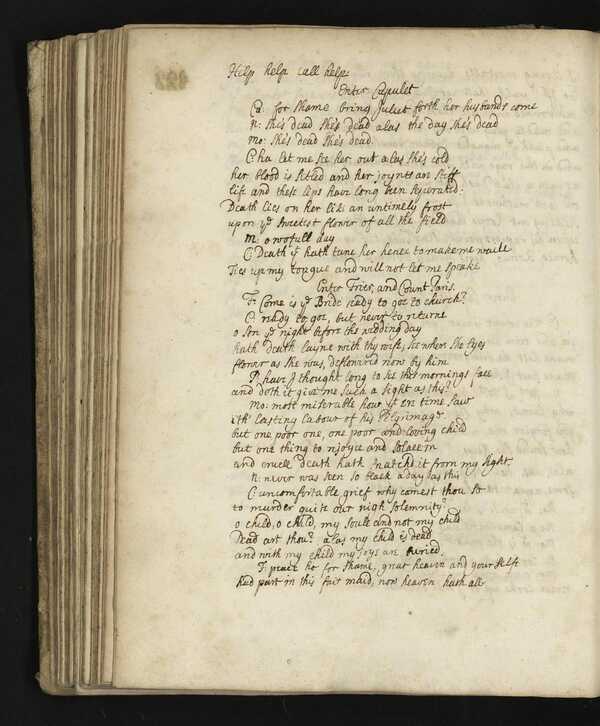 Help help call help:
Enter Capulet
Ca. for shame bring Juliet forth her husbands come
N: she's dead she's dead alas the day she's dead
Mo: she's dead she's dead.
C: ha let me see her out alas she's cold
her blood is setled and her joynts are stiff
life and these lips have long been seperated:
Death lies on her like an untimely frost
upon ye sweetest flower of all the field
M: o wofull day
C: Death yt hath tane her hence to make me waile
Ties up my tongue and will not let me speake
Enter Frier, and Count Paris.
F: Come is ye Bride ready to goe to church?
C: ready to goe, but never to returne
o son ye night before thy wedding day
hath death layne with thy wife, see where she lyes
flower as she was, deflowred now by him
P. have I thought long to see this mornings face
and doth it give me such a sight as this?
Mo: most miserable hour yt ere time saw
ith' lasting labour of his Pilgrimage
but one poor one, one poor and loving child
but one thing to rejoyce and solace in
and cruell death hath snatchd it from my sight.
N: never was seen so black a day as this
C uncomfortable grief why comest thou so
to murder quite our nigh solemnity?
o child, o child, my soule and not my child
Dead art thou? alas my child is dead
and with my child my joys are buried.
F: peace ho for shame, great heaven and your self
had part in this fair maid, now heaven hath all